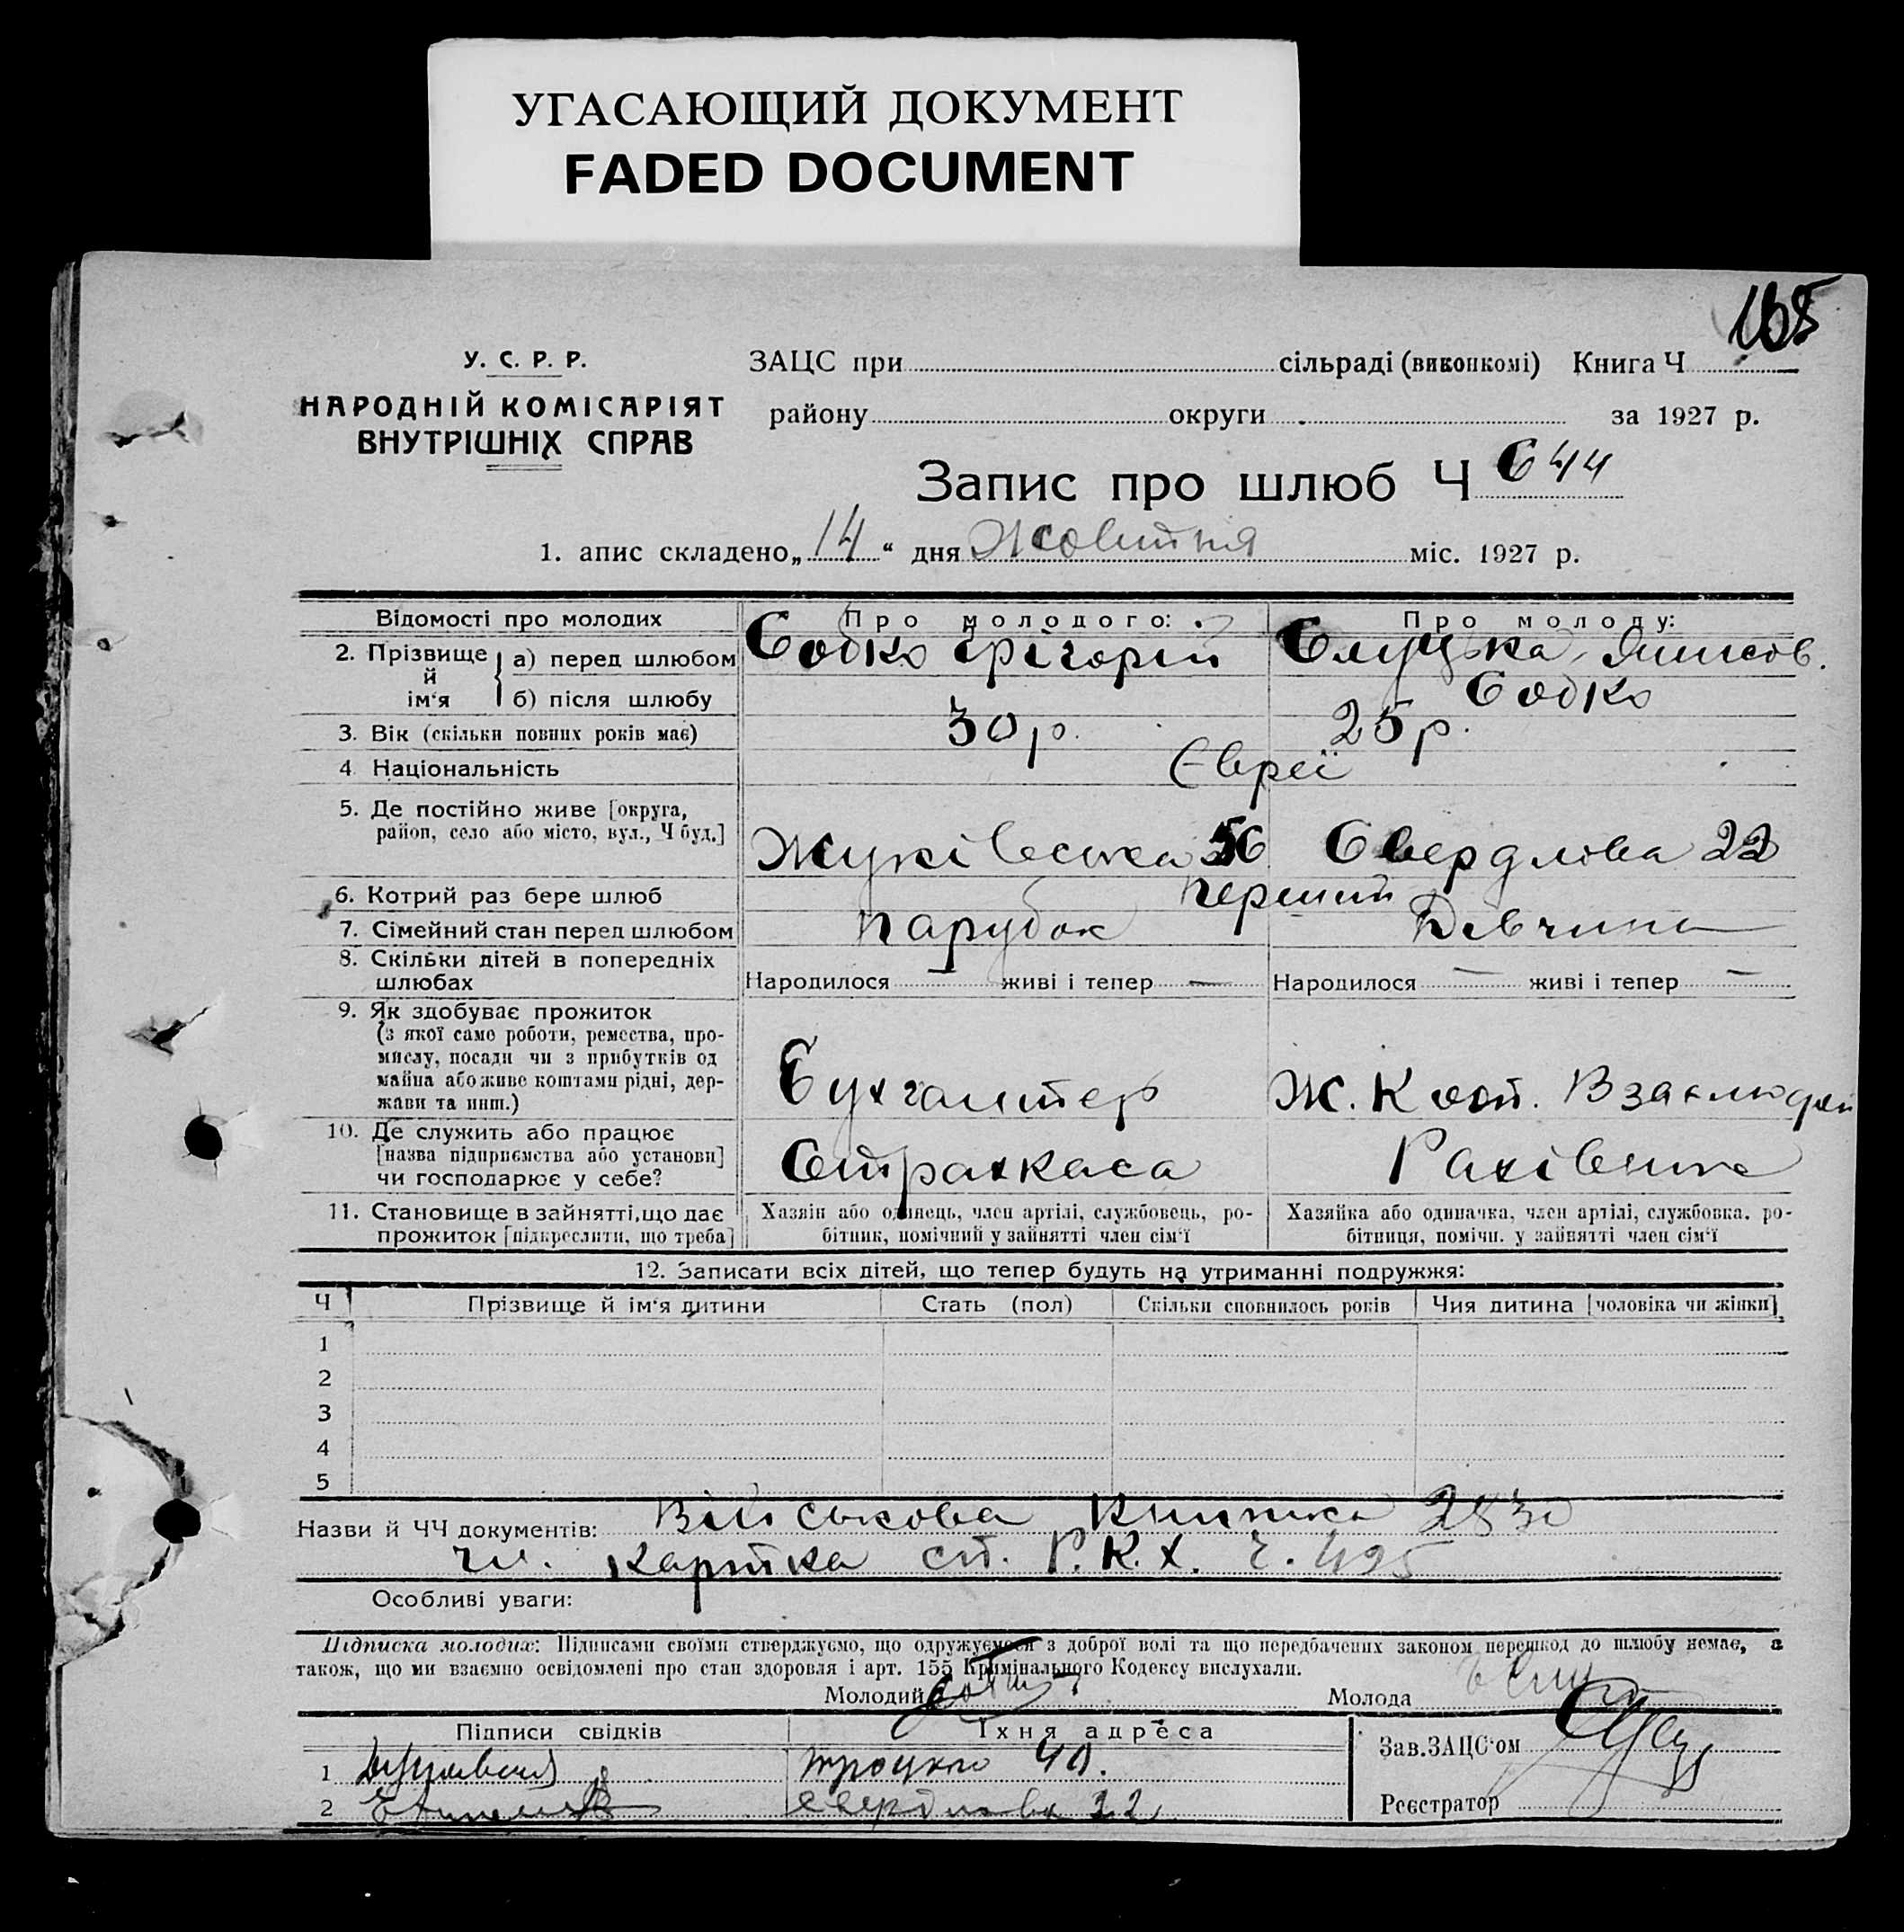 УГАСАЮЩИЙ ДОКУМЕНТ
FADED DOCUMENT
165
У. С. Р. Р.
НАРОДНІЙ КОМІСАРІЯТ
ВНУТРІШНІХ СПРАВ
ЗАЦС при сільраді (виконкомі) Книга Ч
району округи за 1927 р.
Запис про шлюб Ч 644
1. апис складено „14“ дня Жовтня міс. 1927 р.
Відомості про молодих Про молодого: Про молоду:
2. Прізвище й ім'я
а) перед шлюбом Собко Грігорій Слуцька
б) після шлюбу Собко
3. Вік (скільки повних років має) 30 р. 25 р.
4 Національність Євреї
5. Де постійно живе [округа,
район, село або місто, вул., Ч буд.] Жуківська 56 Свердлова 22
6. Котрий раз бере шлюб перший
7. Сімейний стан перед шлюбом парубок Дівчина
8. Скільки дітей в попередніх
шлюбах Народилося — живі і тепер — Народилося — живі і тепер —
9. Як здобуває прожиток
(з якої саме роботи, ремества, про-
мислу, посади чи з прибутків од
майна або живе коштами рідні, дер-
жави та инш.) Бухгалтер Ж. Кооп.
10. Де служить або працює
[назва підприємства або установи]
чи господарює у себе? Страхкаса
11. Становище в зайнятті, що дає
прожиток [підкреслити, що треба]
Хазяін або одинець, член артілі, службовець, ро-
бітник, помічний у зайнятті член сім'ї
Хазяйка або одиначка, член артілі, службовка, ро-
бітниця, помічн. у зайнятті член сім'ї
12. Записати всіх дітей, що тепер будуть на утриманні подружжя:
Ч Прізвище й ім'я дитини Стать (пол) Скільки сповнилось років Чия дитина [чоловіка чи жінки]
1
2
3
4
5
Назви й ЧЧ документів: Військова Книжка
чл. картка сп. Р.К.Х. ч. 495
Особливі уваги:
Підписка молодих: Підписами своїми стверджуємо, що одружуємося з доброї волі та що передбачених законом перешкод до шлюбу немає, а
також, що ми взаємно освідомлені про стан здоровля і арт. 155 Крімінального Кодексу вислухали.
Молодий Молода
Підписи свідків Їхня адреса
1 Троцкого 40.
2 Свердлова 22
Зав. ЗАЦС'ом
Реєстратор